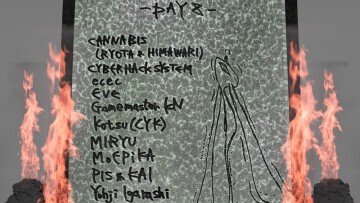 -DAY 2-
CANNABIS
(RYOTA & HIMAWARI)
CYBERHACKSYSTEM
ecec
EVE
Gamemaster KN
Kotsu (CYK)
MIRYU
MOEPIKA
PIS & KAI
Yohji Igarashi